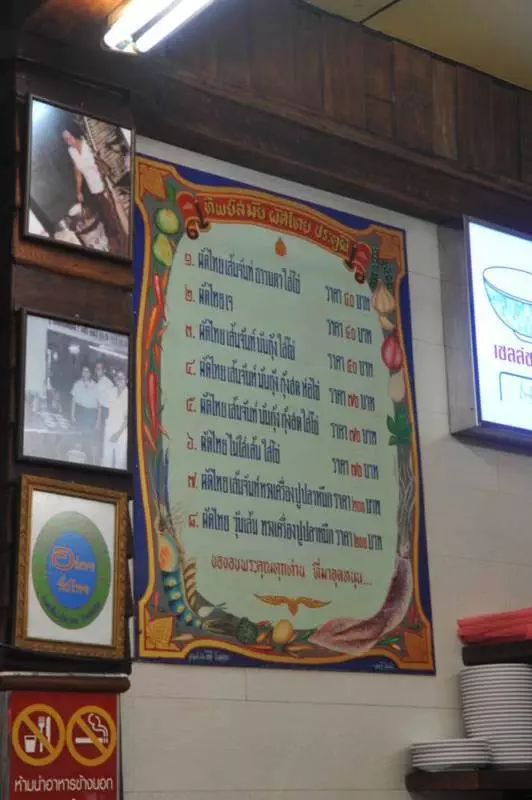 ทิพย์สมัย ผัดไทย ประตูผี
๑. ผัดไทยเส้นจันท์ ธรรมดา ใส่ไข่ ราคา ๔๐ บาท
๒. ผัดไทย เจ ราคา ๔๐ บาท
๓. ผัดไทยเส้นจันท์ มันกุ้ง ใส่ไข่ ราคา ๕๐ บาท
๔. ผัดไทยเส้นจันท์ มันกุ้ง กุ้งสด ห่อไข่ ราคา ๗๐ บาท
๕. ผัดไทยเส้นจันท์ มันกุ้ง กุ้งสด ใส่ไข่ ราคา ๗๐ บาท
๖. ผัดไทย ไม่ใส่เส้น ใส่ไข่ ราคา ๗๐ บาท
๗. ผัดไทยเส้นจันท์ทรงเครื่องปูปลาหมึก ราคา ๒๐๐ บาท
๘. ผัดไทย วุ้นเส้น ทรงเครื่องปูปลาหมึก ราคา ๒๐๐ บาท
ขอขอบพระคุณทุกท่าน ที่มาอุดหนุน...
ห้ามนำอาหารข้างนอก